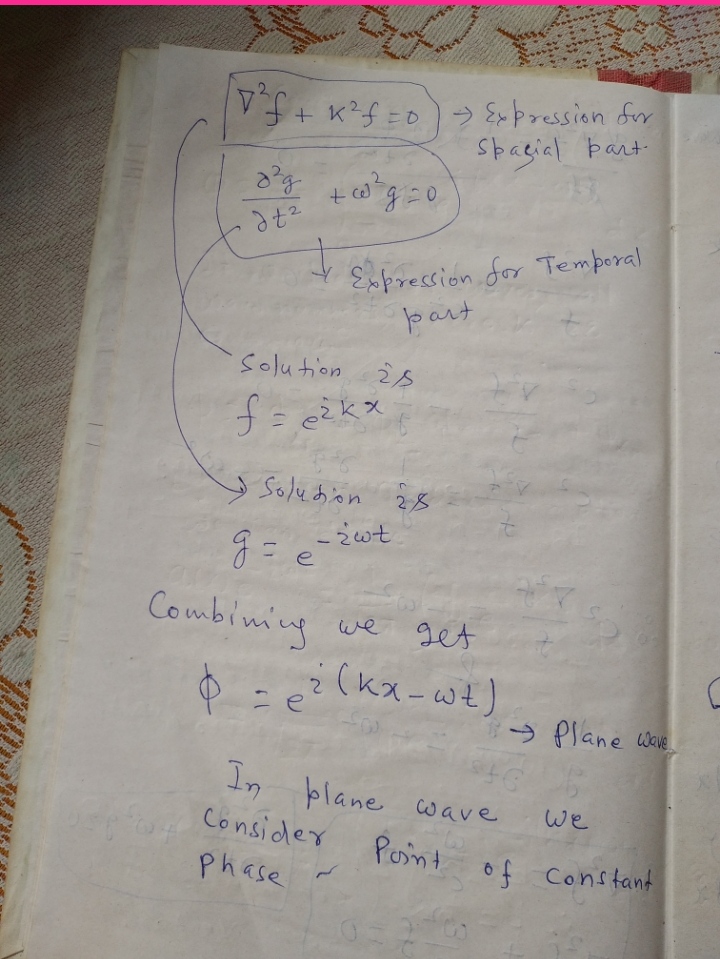 ∇²f + k²f = 0 → Expression for
spacial part.
∂²g/∂t² + ω²g = 0
↓ Expression for Temporal
part
Solution is
f = e^{ikx}
Solution is
g = e^{-iωt}
Combining we get
ϕ = e^{i(kx-ωt)}
→ Plane wave
In plane wave we
consider Point of constant
phase ~